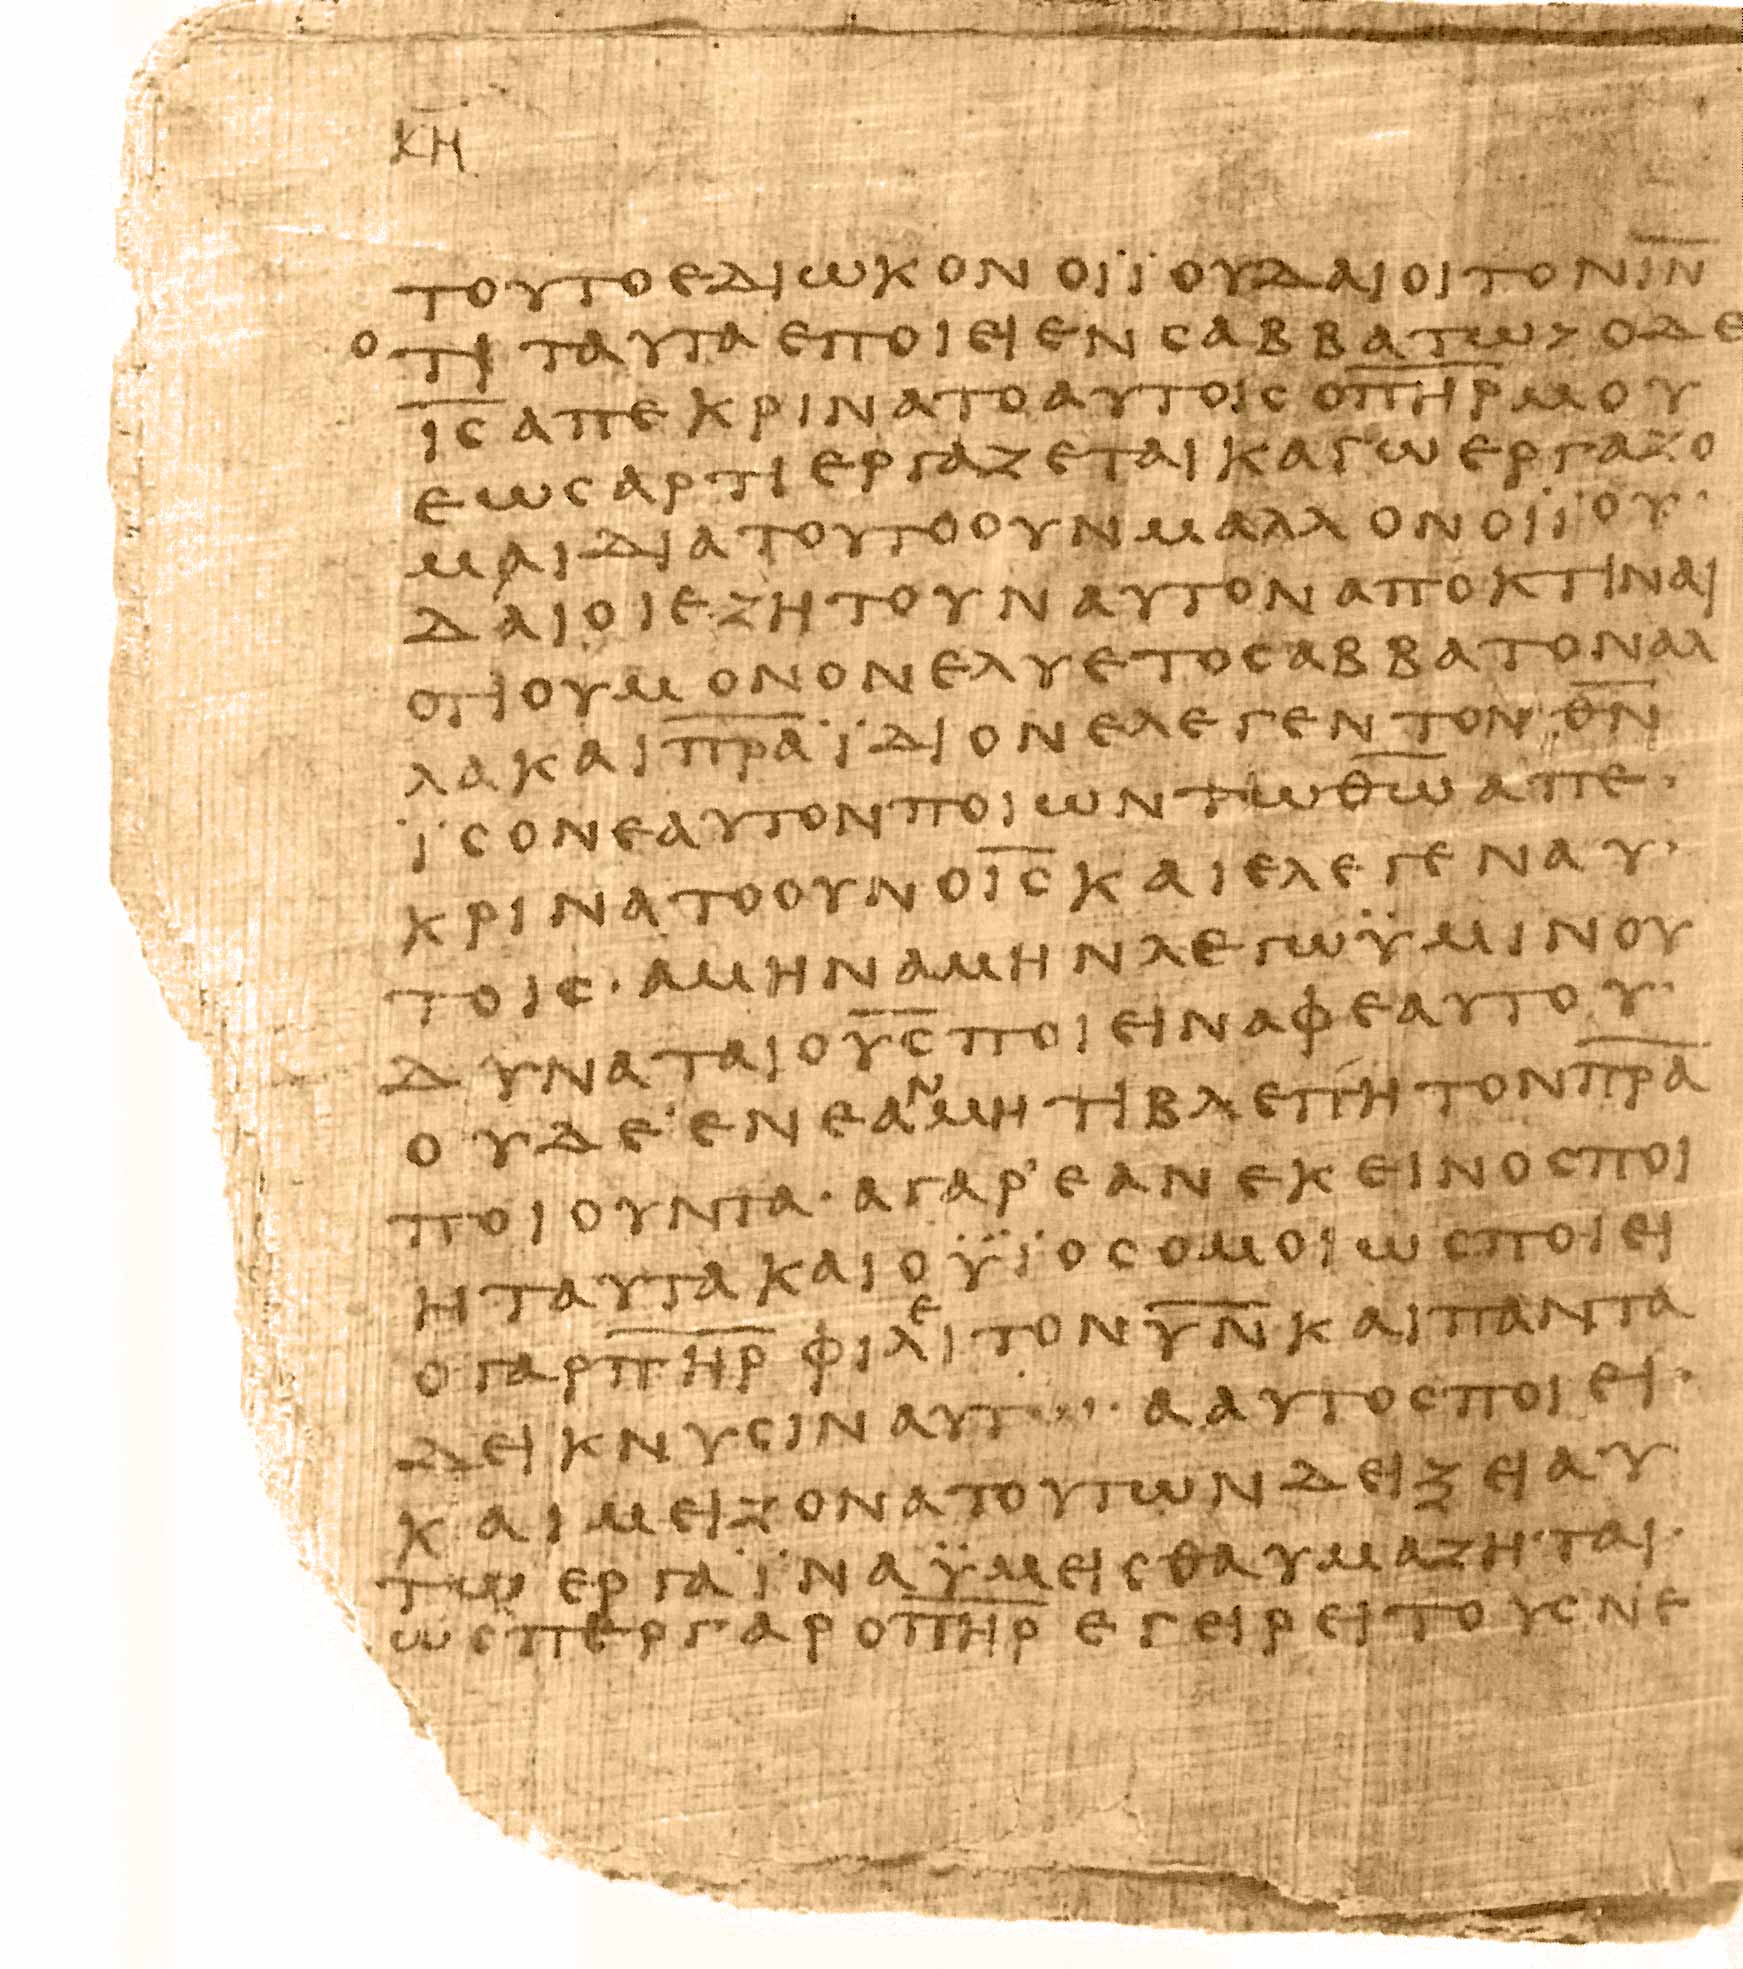 κ̅η̅
τουτο εδιωκον οι ϊουδαιοι τον ι̅ν̅
οτι ταυτα εποιει εν σαββατω> ο δε
ι̅ς̅ απεκρινατο αυτοις ο π̅η̅ρ̅ μου
εως αρτι εργαζεται καγω εργαζο
μαι δια τουτο ουν μαλλον οι ϊου·
δαιοι εζητουν αυτον αποκτιναι
οτι ου μονον ελυε το σαββατον αλ
λα και π̅ρ̅α̅ ϊδιον ελεγεν τον θ̅ν̅
ϊσον εαυτον ποιων τω θ̅ω̅ απε·
κρινατο ουν ο ι̅ς̅ και ελεγεν αυ·
τοις· αμην αμην λεγω ϋμιν ου
δυναται ο υ̅ς̅ ποιειν αφ εαυτου·
ουδε εν εαν μη τι βλεπη τον π̅ρ̅α̅
ποιουντα· α γαρ᾽ εαν εκεινος ποι
η ταυτα και ο ϋϊος ομοιως ποιει
ο γαρ π̅η̅ρ̅ φιλει τον υ̅ν̅ και παντα
δεικνυσιν α αυτος ποιει·
και μειζονα τουτων δειξει αυ
τω εργα ϊνα ϋμεις θαυμαζηται·
ωσπερ γαρ ο π̅η̅ρ̅ εγειρει τους νε